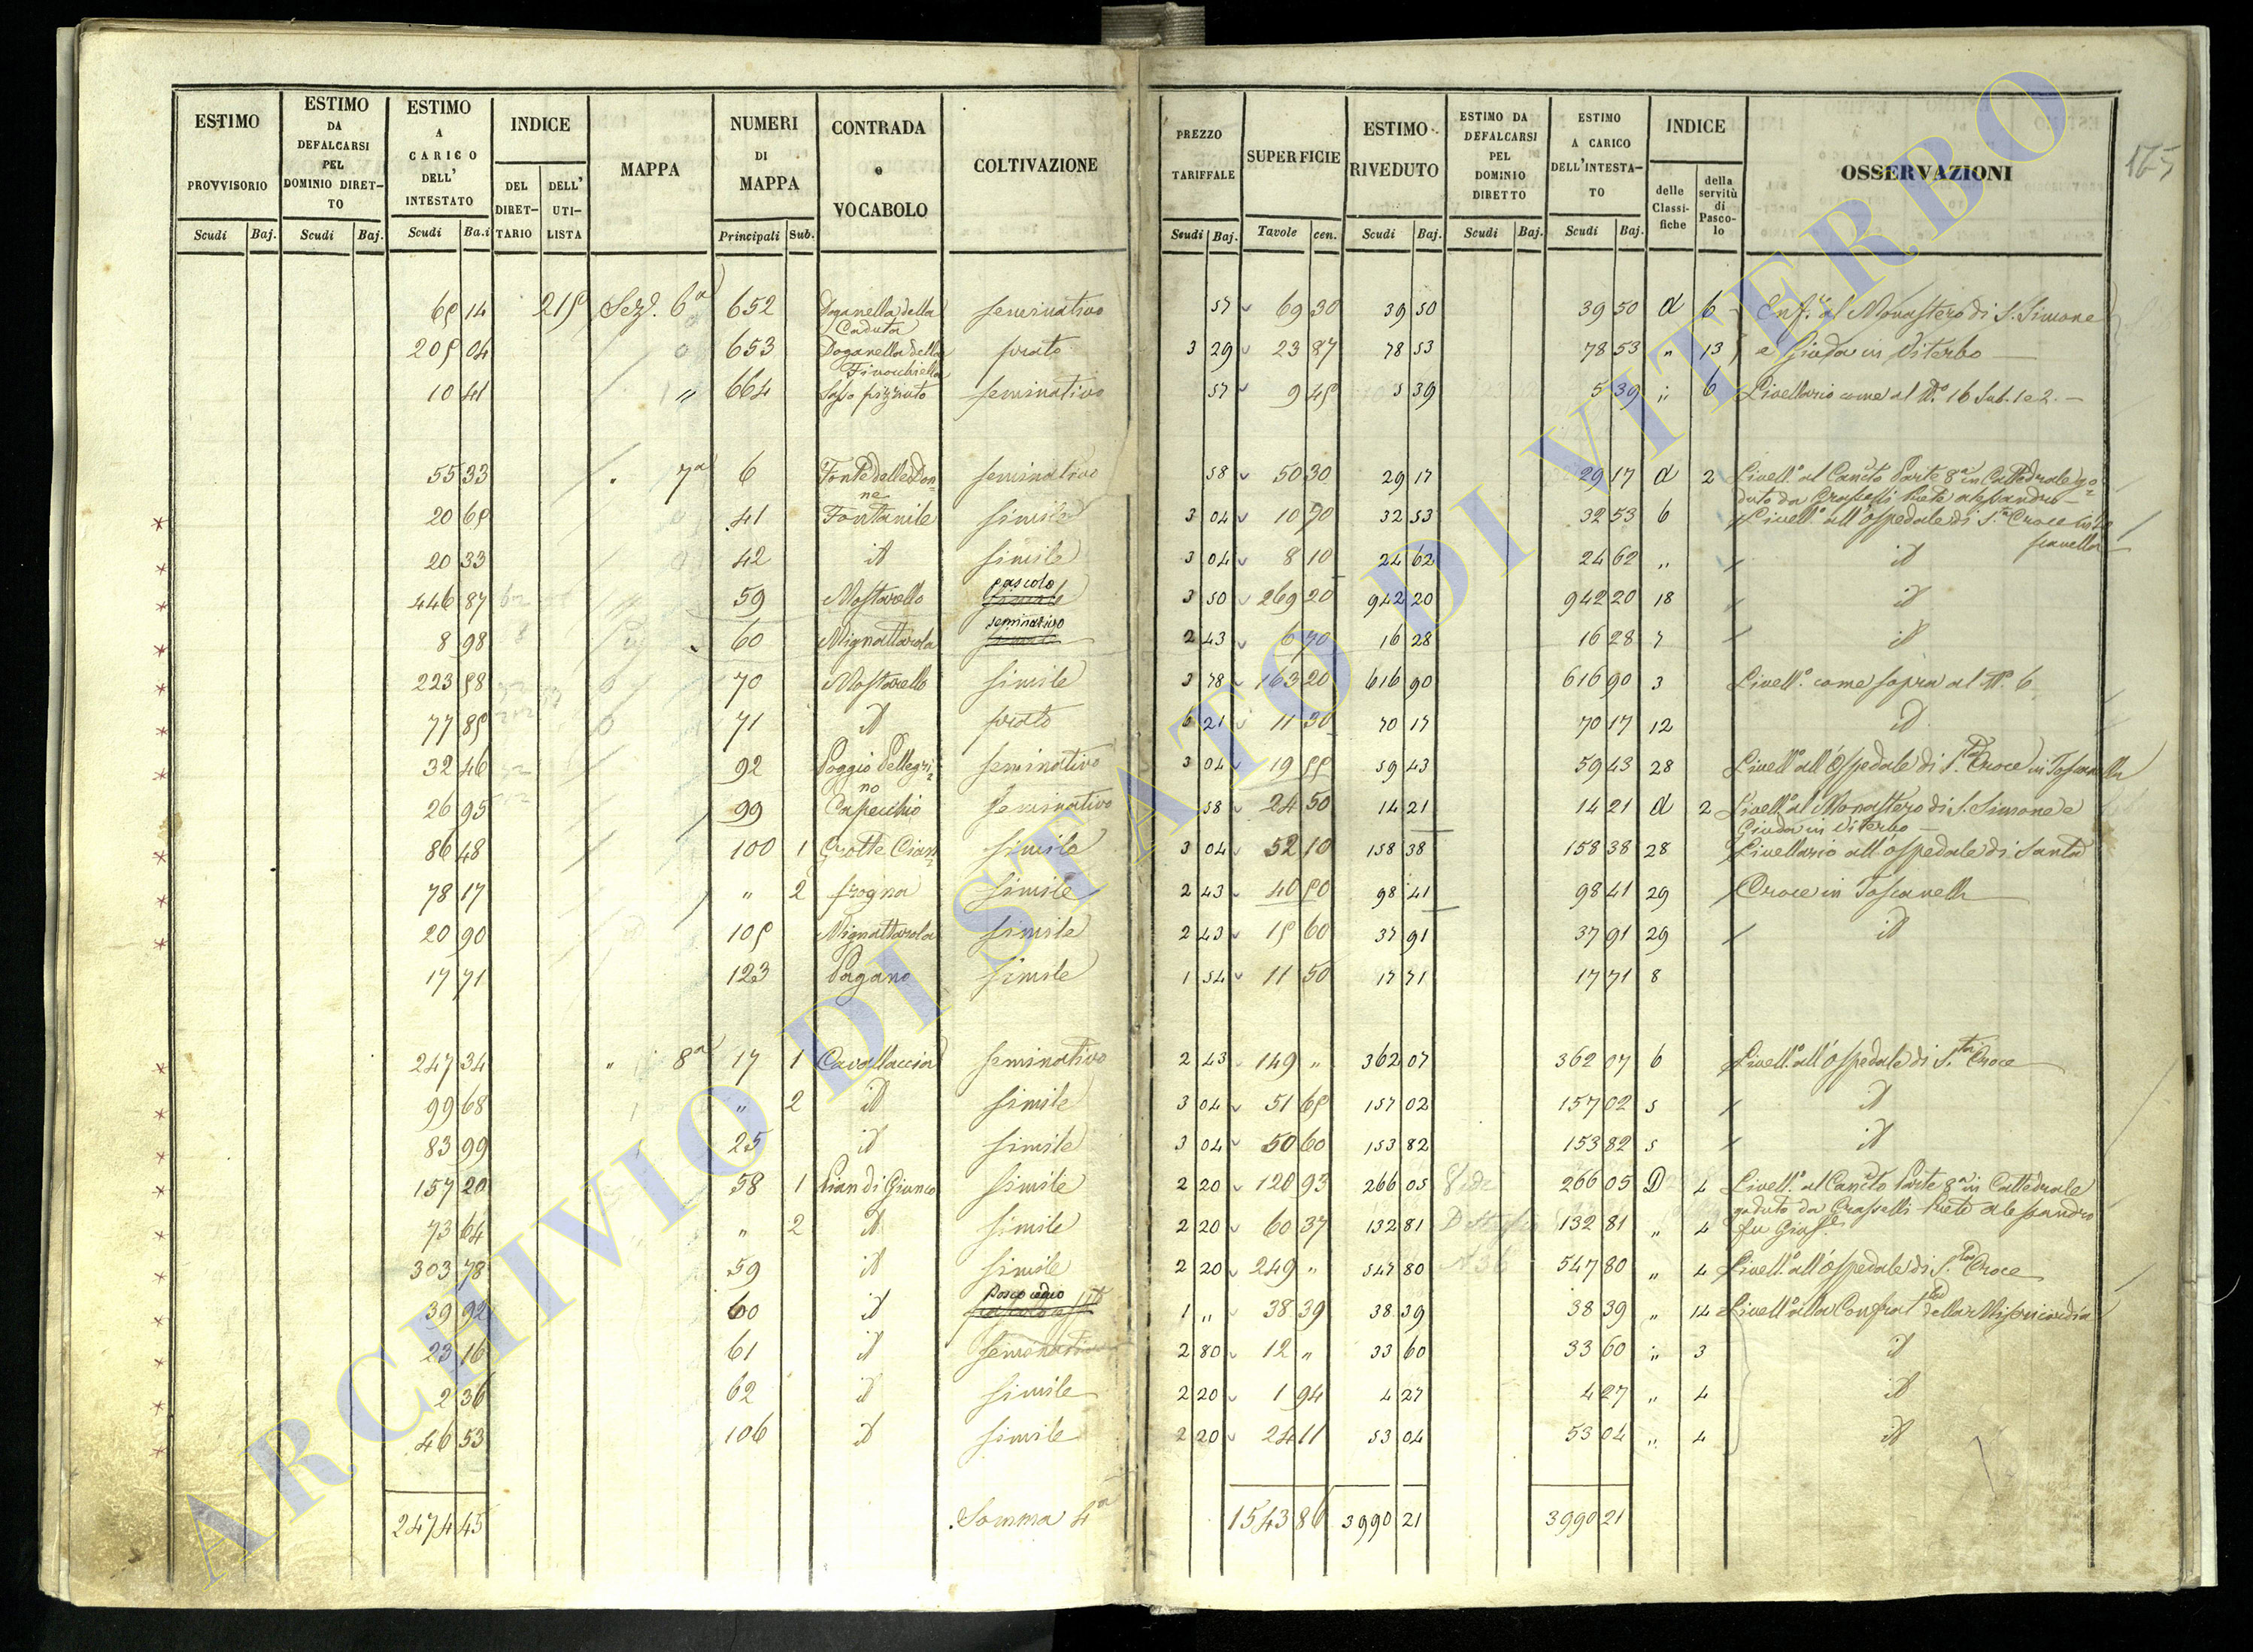 ESTIMO PROVVISORIO | ESTIMO DA DEFALCARSI PEL DOMINIO DIRETTO | ESTIMO A CARICO DELL' INTESTATO | INDICE | MAPPA | NUMERI DI MAPPA | CONTRADA o VOCABOLO | COLTIVAZIONE | PREZZO TARIFFALE | SUPERFICIE | ESTIMO RIVEDUTO | ESTIMO DA DEFALCARSI PEL DOMINIO DIRETTO | ESTIMO A CARICO DELL'INTESTATO | INDICE | OSSERVAZIONI
165
DEL DIRETTARIO | DELL' UTILISTA | delle Classifiche | della servitù di Pascolo
Scudi Baj. | Scudi Baj. | Scudi Baj. | Principali Sub. | Scudi Baj. | Tavole cen. | Scudi Baj. | Scudi Baj. | Scudi Baj.
65 14 215 Sez. 6a 652 Doganella della Caduta seminativo 57 69 30 39 50 39 50 d 6 Enf. al Monastero di S. Simone
205 04 653 Doganella della Finocchiella prato 3 29 23 87 78 53 78 53 " 13 e Giuda in Viterbo
10 41 " 664 Sasso pizzuto seminativo 57 9 45 5 39 5 39 " 6 Livellario come al No. 16 Sub. 1 e 2.
55 33 " 7a 6 Fonte delle Donne seminativo 58 50 30 29 17 29 17 d 2 Livello al Canto Parte 8a in Cattedrale goduto da Grasselli Prete Alessandro
20 65 41 Fontanile simile 3 04 10 70 32 53 32 53 6 Livello all'Ospedale di S.ta Croce in Toscanella
20 33 42 id simile 3 04 8 10 24 62 24 62 " id
446 87 59 Mostarello pascolo 3 50 269 20 942 20 942 20 18 id
8 98 60 Mignattarola seminativo 2 43 6 70 16 28 16 28 7 id
223 58 70 Mostarello simile 3 78 163 20 616 90 616 90 3 Livello come sopra al No. 6
77 85 71 id prato 6 21 11 30 70 17 70 17 12 id
32 46 92 Poggio Pellegrino seminativo 3 04 19 55 59 43 59 43 28 Livello all'Ospedale di S.ta Croce in Toscanella
26 95 99 Capecchio seminativo 58 24 50 14 21 14 21 d 2 Livello al Monastero di S. Simone e Giuda in Viterbo
86 48 100 1 Grotte Cian= simile 3 04 52 10 158 38 158 38 28 Livellario all'ospedale di Santa
78 17 " 2 frogna simile 2 43 40 50 98 41 98 41 29 Croce in Toscanella
20 90 105 Mignattarola simile 2 43 15 60 37 91 37 91 29 id
17 71 123 Pagano simile 1 54 11 50 17 71 17 71 8
247 34 " 8a 17 1 Cavallaccia seminativo 2 43 149 " 362 07 362 07 6 Livello all'Ospedale di S.ta Croce
99 68 " 2 id simile 3 04 51 65 157 02 157 02 5 id
83 99 25 id simile 3 04 50 60 153 82 153 82 5 id
157 20 58 1 Pian di Giunco simile 2 20 120 93 266 05 266 05 D 4 Livello al Canto Parte 8a in Cattedrale
73 64 " 2 id simile 2 20 60 37 132 81 132 81 " 4 goduto da Grasselli Prete Alessandro fu Gius.
303 78 59 id simile 2 20 249 " 547 80 547 80 " 4 Livello all'Ospedale di S.ta Croce
39 92 60 id bosco ceduo 1 " 38 39 38 39 38 39 " 14 Livello alla Confrat. della Misericordia
23 16 61 id seminativo 2 80 12 " 33 60 33 60 " 3 id
2 36 62 id simile 2 20 1 94 4 27 4 27 " 4 id
46 53 106 id simile 2 20 24 11 53 04 53 04 " 4 id
2474 45 Somma 4a 1543 86 3990 21 3990 21
ARCHIVIO DI STATO DI VITERBO